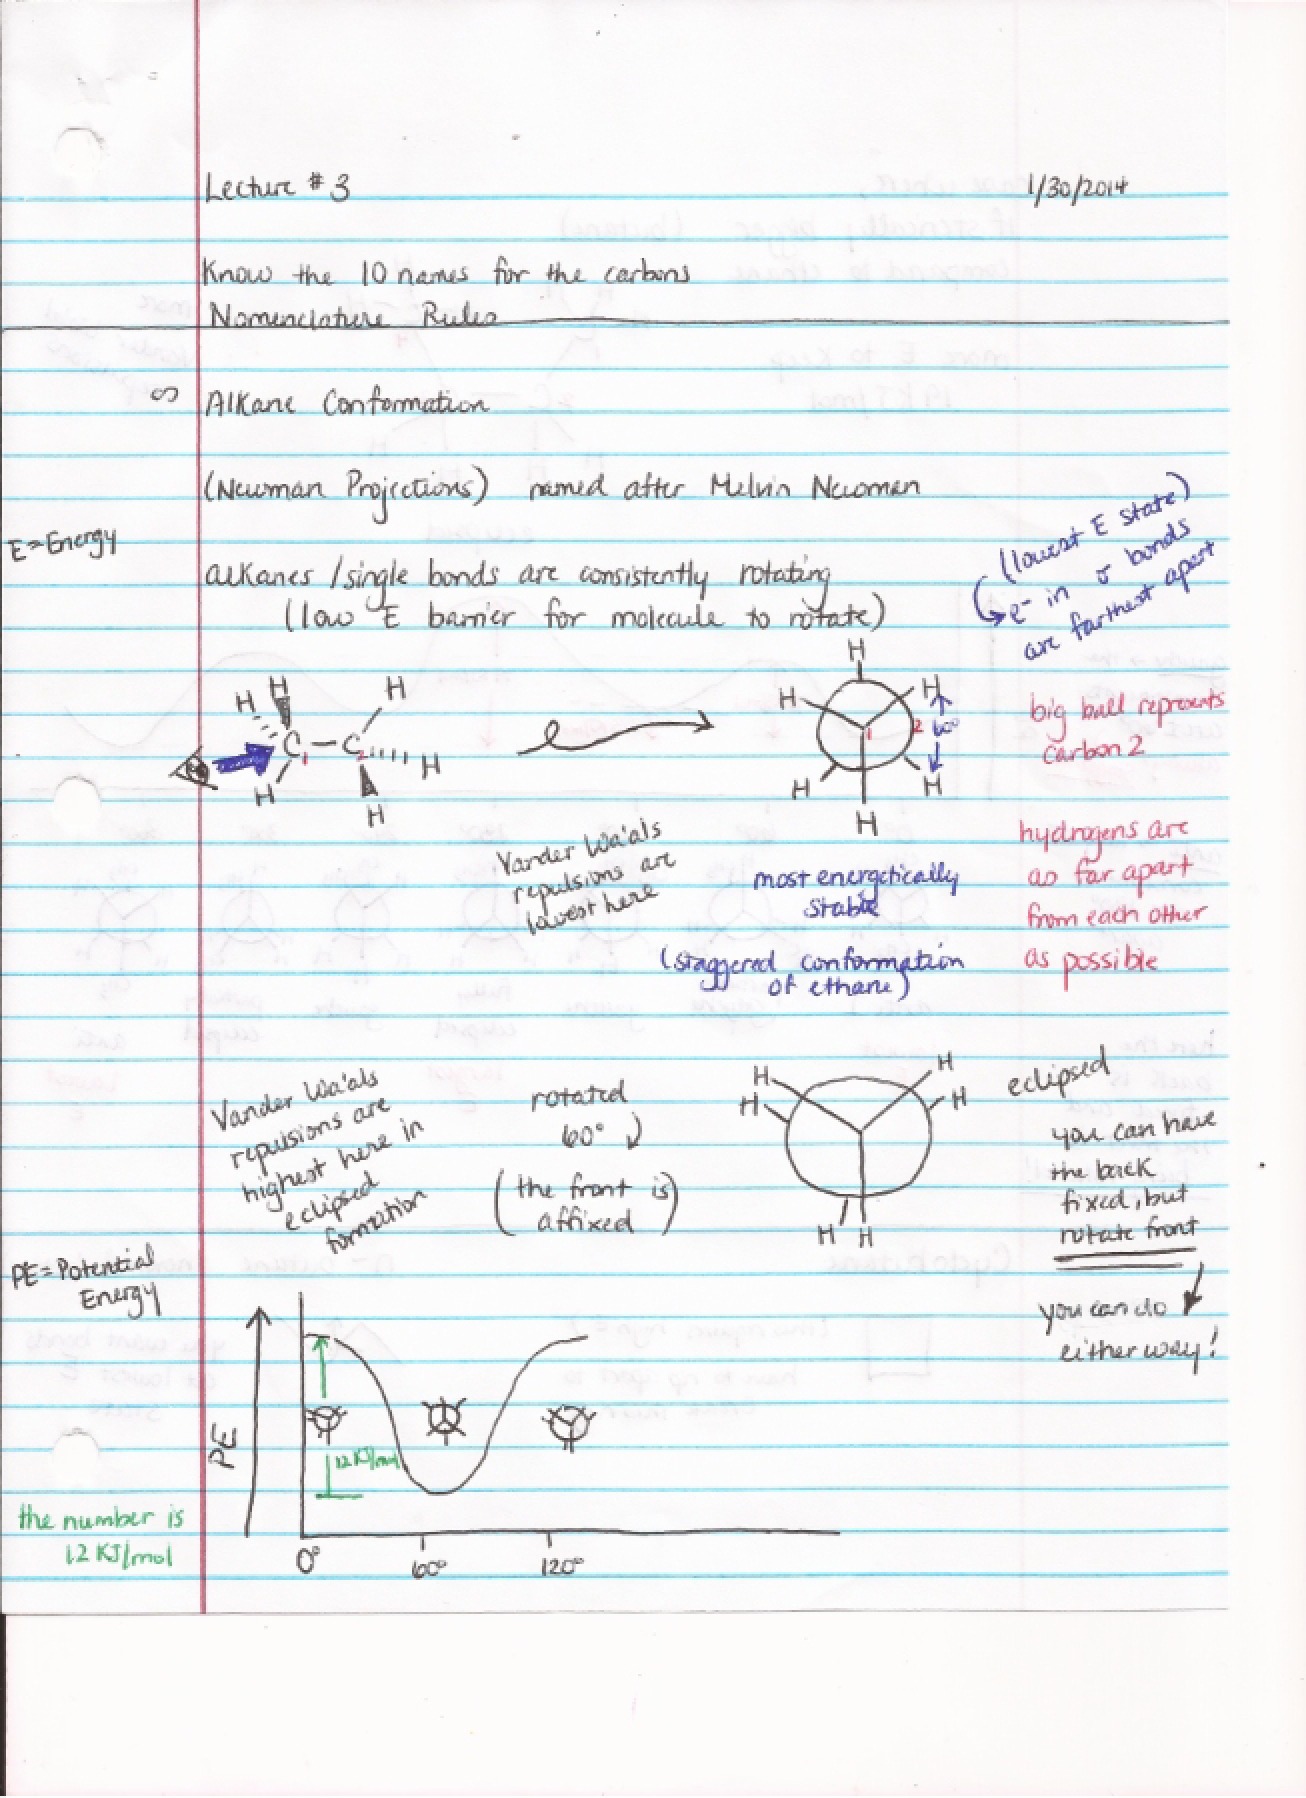 Lecture #3
1/30/2014
Know the 10 names for the carbons
Nomenclature Rules
Alkane Conformation
(Newman Projections) named after Melvin Newman
E=Energy
alkanes/single bonds are consistently rotating
(low E barrier for molecule to rotate)
(lowest E state)
e- in σ bonds
are farthest apart
H H H
C1 - C2
H H H
H
H H
1 2 60°
H H
H
big ball represents
carbon 2
Vander Wa'als
repulsions are
lowest here
most energetically
stable
(staggered conformation
of ethane)
hydrogens are
as far apart
from each other
as possible
Vander Wa'als
repulsions are
highest here in
eclipsed
formation
rotated
60°
(the front is
affixed)
H H
H H
H H
eclipsed
you can have
the back
fixed, but
rotate front
you can do
either way!
PE=Potential
Energy
PE
12 KJ/mol
the number is
12 KJ/mol
0° 60° 120°